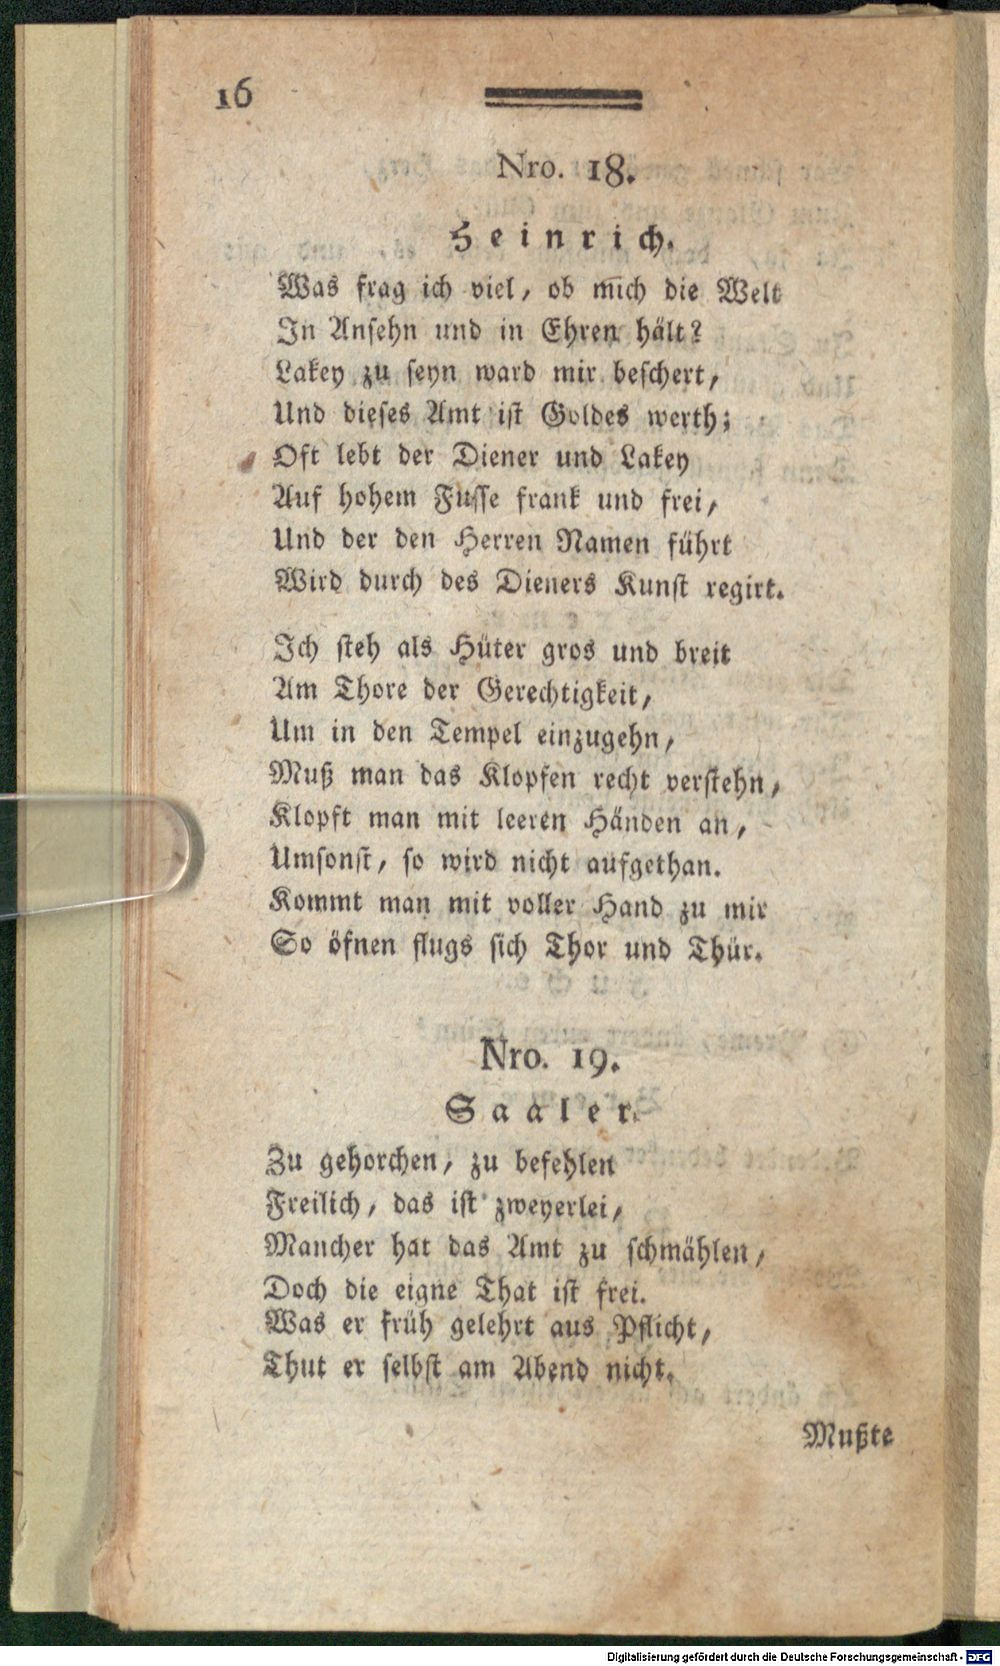 16
Nro. 18.
Heinrich.
Was frag ich viel, ob mich die Welt
In Ansehn und in Ehren hält?
Lakey zu seyn ward mir beschert,
Und dieses Amt ist Goldes werth;
Oft lebt der Diener und Lakey
Auf hohem Fusse frank und frei,
Und der den Herren Namen führt
Wird durch des Dieners Kunst regirt.
Ich steh als Hüter gros und breit
Am Thore der Gerechtigkeit,
Um in den Tempel einzugehn,
Muß man das Klopfen recht verstehn,
Klopft man mit leeren Händen an,
Umsonst, so wird nicht aufgethan.
Kommt man mit voller Hand zu mir
So öfnen flugs sich Thor und Thür.
Nro. 19.
Saaler.
Zu gehorchen, zu befehlen
Freilich, das ist zweyerlei,
Mancher hat das Amt zu schmählen,
Doch die eigne That ist frei.
Was er früh gelehrt aus Pflicht,
Thut er selbst am Abend nicht.
Mußte
Digitalisierung gefördert durch die Deutsche Forschungsgemeinschaft - DFG